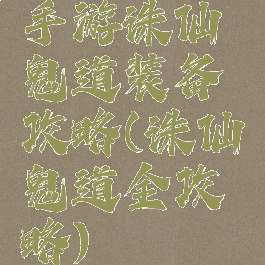 手游诛仙
鬼道装备
攻略(诛仙
鬼道全攻
略)